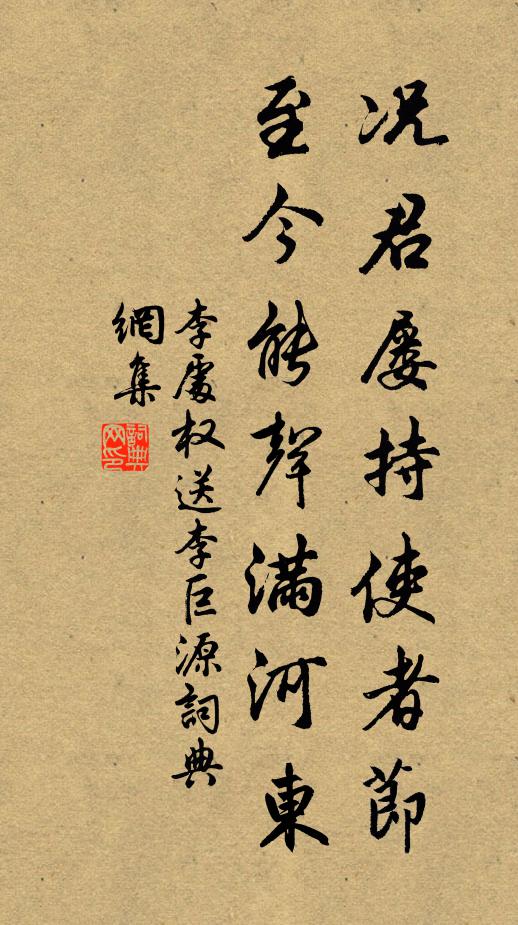 况君屡持使者節
至今能聲滿河東
李處权送李巨源詞典
網集
詞典网印